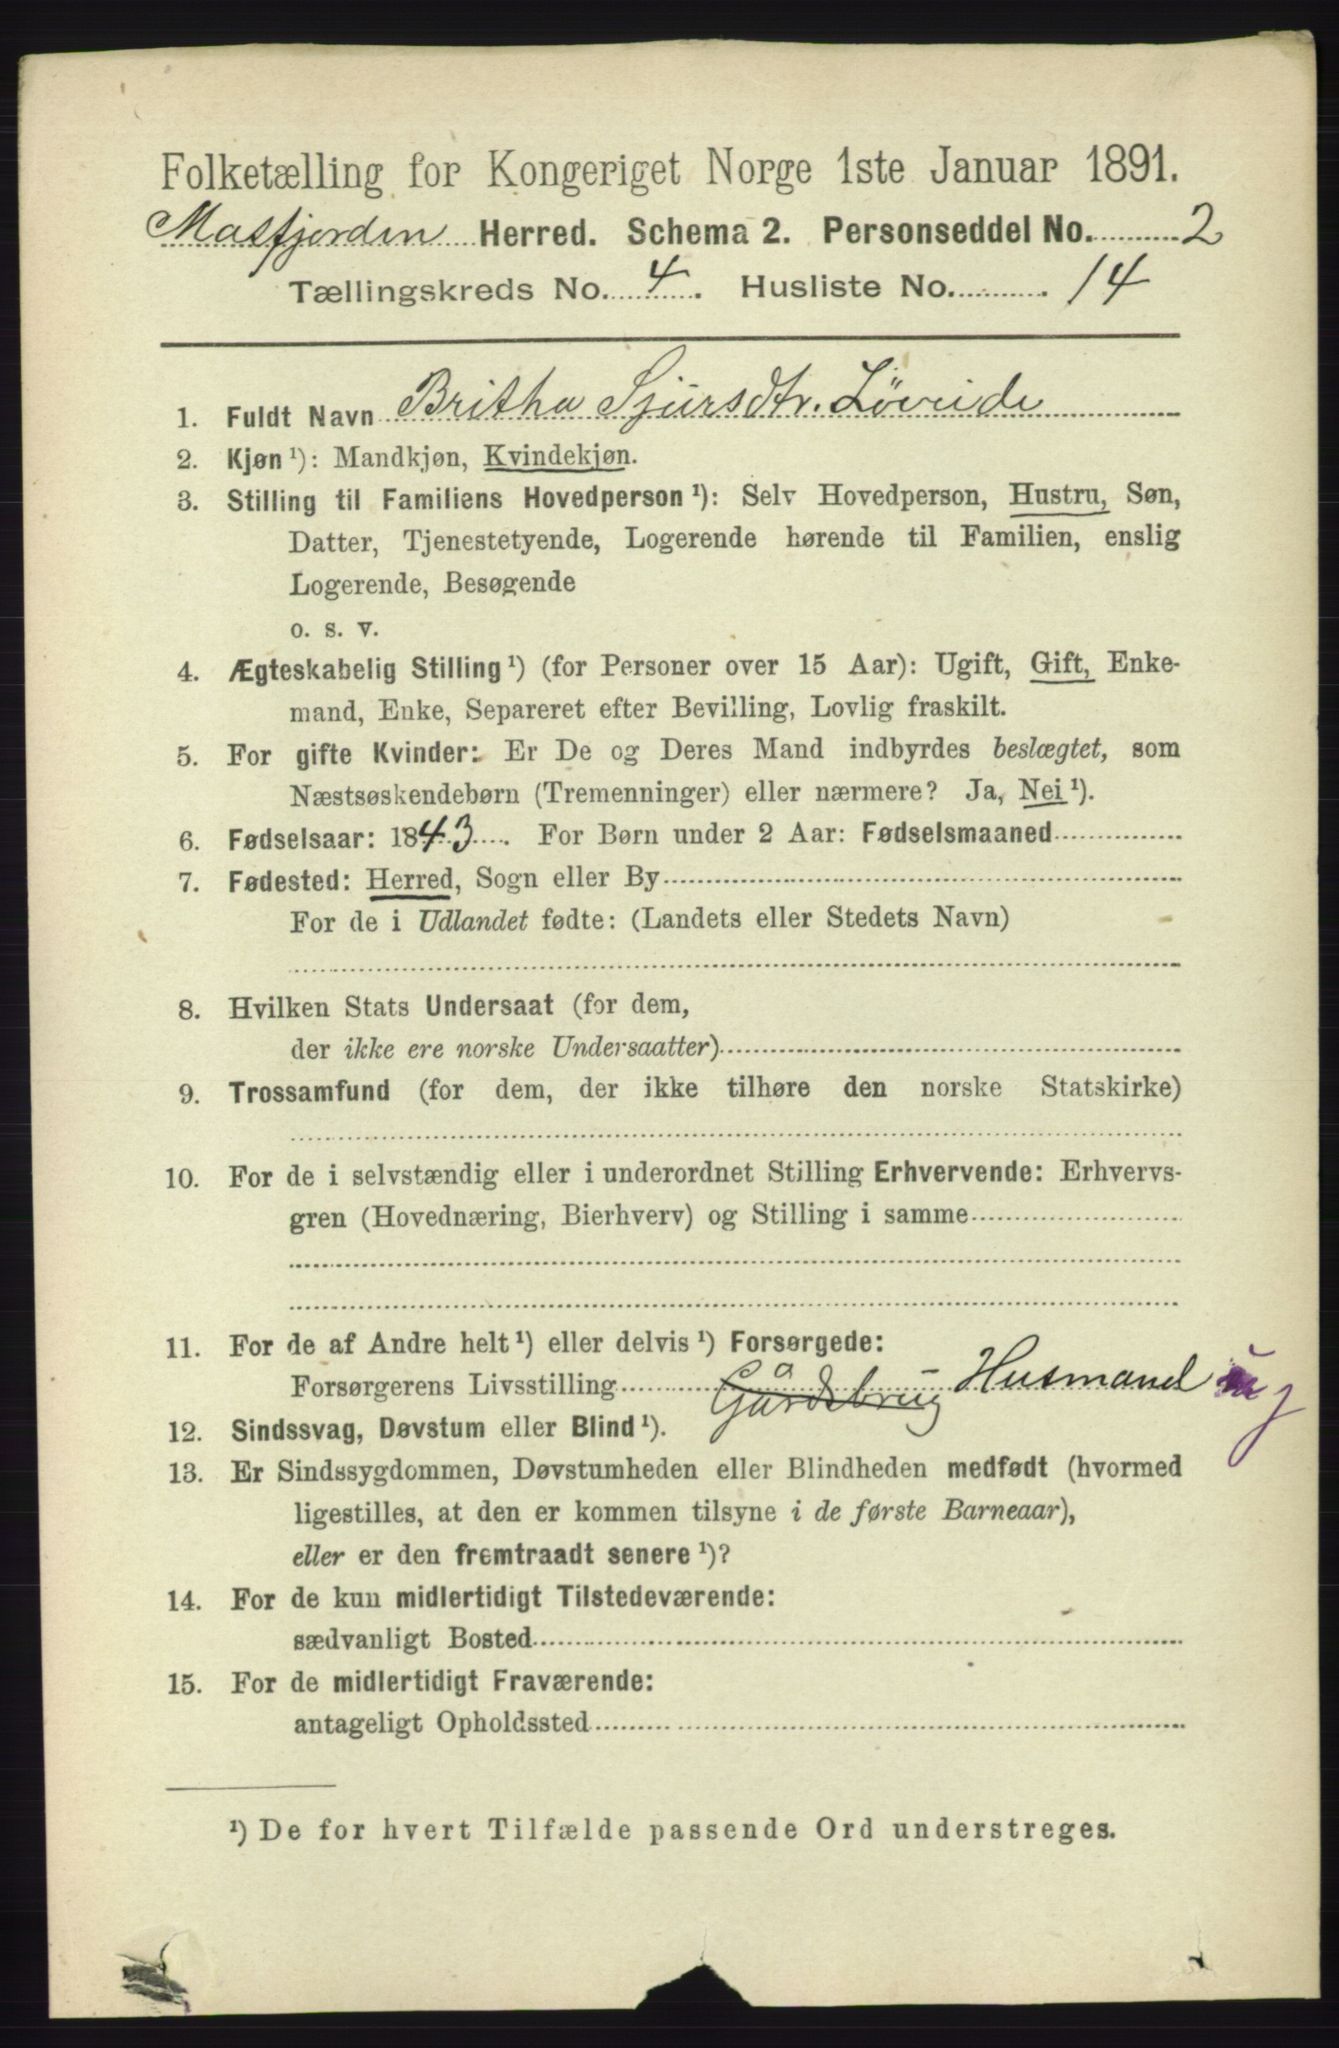 Folketælling for Kongeriget Norge 1ste Januar 1891.
Masfjorden Herred. Schema 2. Personseddel No. 2
Tællingskreds No. 4. Husliste No. 14
1. Fuldt Navn Britha Sjursdtr. Løveide
2. Kjøn ¹): Mandkjøn, Kvindekjøn.
3. Stilling til Familiens Hovedperson ¹): Selv Hovedperson, Hustru, Søn,
Datter, Tjenestetyende, Logerende hørende til Familien, enslig
Logerende, Besøgende
o. s. v.
4. Ægteskabelig Stilling ¹) (for Personer over 15 Aar): Ugift, Gift, Enke-
mand, Enke, Separeret efter Bevilling, Lovlig fraskilt.
5. For gifte Kvinder: Er De og Deres Mand indbyrdes beslægtet, som
Næstsøskendebørn (Tremenninger) eller nærmere? Ja, Nei ¹).
6. Fødselsaar: 1843. For Børn under 2 Aar: Fødselsmaaned
7. Fødested: Herred, Sogn eller By
For de i Udlandet fødte: (Landets eller Stedets Navn)
8. Hvilken Stats Undersaat (for dem,
der ikke ere norske Undersaatter)
9. Trossamfund (for dem, der ikke tilhøre den norske Statskirke)
10. For de i selvstændig eller i underordnet Stilling Erhvervende: Erhvervs-
gren (Hovednæring, Bierhverv) og Stilling i samme
11. For de af Andre helt ¹) eller delvis ¹) Forsørgede:
Forsørgerens Livsstilling Gårdsbrug Husmand
12. Sindssvag, Døvstum eller Blind ¹).
13. Er Sindssygdommen, Døvstumheden eller Blindheden medfødt (hvormed
ligestilles, at den er kommen tilsyne i de første Barneaar),
eller er den fremtraadt senere ¹)?
14. For de kun midlertidigt Tilstedeværende:
sædvanligt Bosted
15. For de midlertidigt Fraværende:
antageligt Opholdssted
¹) De for hvert Tilfælde passende Ord understreges.